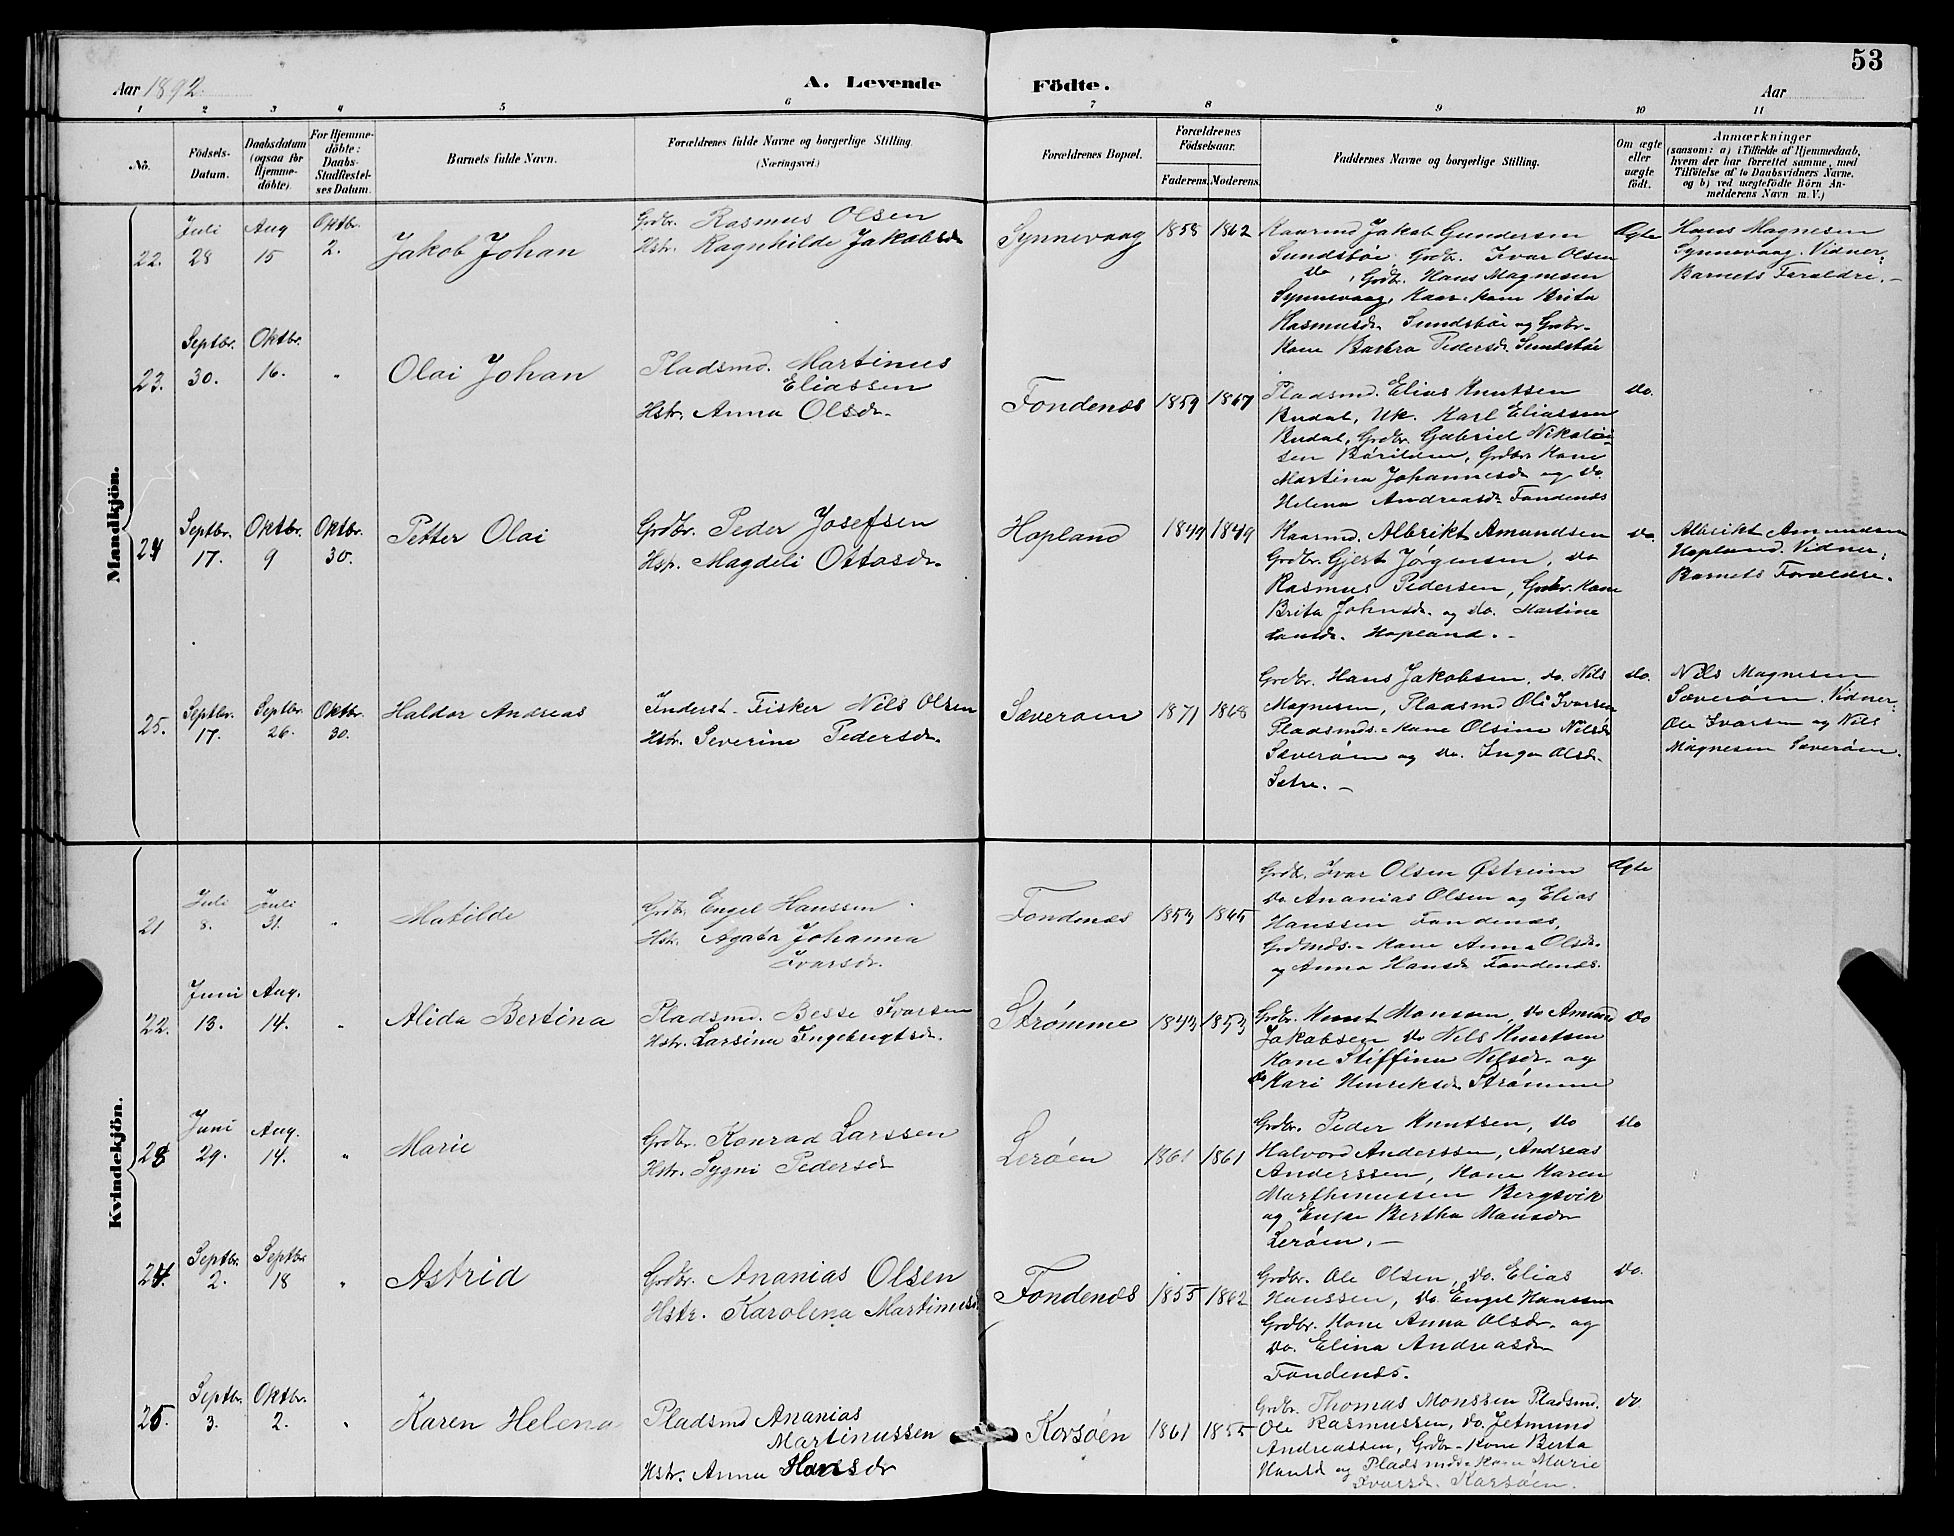 53
Aar 1892.
A. Levende Födte.
Aar
1 2 3 4 5 6 7 8 9 10 11
No.
Födsels-Datum.
Daabsdatum (ogsaa for Hjemme-döbte).
For Hjemme-döbte: Daabs-Stadfæstel-ses Datum.
Barnets fulde Navn.
Forældrenes fulde Navne og borgerlige Stilling. (Næringsvei.)
Forældrenes Bopæl.
Forældrenes Födselsaar.
Faderens. Moderens.
Faddernes Navne og borgerlige Stilling.
Om ægte eller uægte født.
Anmærkninger
(saasom: a) i Tilfælde af Hjemmedaab,
hvem der har forrettet samme, med
Tilföielse af to Daabsvidners Navne,
og b) ved uægtefödte Börn An-
melderens Navn m. V.)
Mandkjön.
22. Juli 28 Aug 15 Oktbr. 2. Jakob Johan
Grdbr. Rasmus Olsen
Hstr. Ragnhilde Jakobsdr
Synnevaag 1858 1862
Kaarmd Jakob Gundersen
Sundsböe, Grdbr. Ivar Olsen
do, Grdbr. Hans Magnesen
Synnevaag, Kaar-kone Brita
Rasmusdr. Sundsböe og Grdbr-
kone Barbra Pedersdr. Sundsböe
Ægte
Hans Magnesen
Synnevaag. Vidner:
Barnets Forældre. -
23. Septbr. 30. Oktbr. 16. " Olai Johan
Pladsmd. Martinus
Eliassen
Hstr. Anna Olsdr.
Fondenæs 1859 1867
Pladsmd. Elias Knutsen
Budal, Uk. Karl Eliassen
Budal, Grdbr. Gabriel Nikolai-
sen Börilden, Grdbr. Kone
Martina Johannesdr og do.
Helena Andreasdr Fondenæs
do.
24 Septbr. 17. Oktbr. 9 Oktbr. 30. Petter Olai
Grdbr. Peder Josefsen
Hstr. Magdeli Ottosdr.
Hopland 1849 1849
Kaarmd. Albrikt Amundsen
Grdbr. Gjert Jørgensen, do
Rasmus Pedersen, Grdbr. Kone
Brita Johnsdr. og do. Martine
Hopland. -
do.
Albrikt Amundsen
Hopland. Vidner:
Barnets Forældre.
25. Septbr. 17. Septbr. 26. Oktbr. 30. Haldor Andreas
Inderst. Fisker Nils Olsen
Hstr. Severine Pedersdr.
Sæverøen 1871 1868
Grdbr. Hans Jakobsen, do. Nils
Magnesen, Pladsmd Ole Ivarsen
Pladsmds.-kone Olsine Nilsdr
Sæverøen og do. Inga Olsdr.
Setre. -
do.
Nils Magnesen
Sæverøen. Vidner:
Ole Ivarsen og Nils
Magnesen Sæverøen.
Kvindekjön.
21 Juli 8. Juli 31. " Matilde
Grdbr. Engel Hanssen
Hstr. Agata Johanna
Ivarsdr.
Fondenæs 1853 1845
Grdbr. Ivar Olsen Østreim
do Ananias Olsen og Elias
Hanssen Fondenæs,
Grdmds.-kone Anna Olsdr.
og Anna Hansdr Fondenæs.
Ægte
22. Juni 13. Aug. 14. " Alida Bertina
Pladsmd. Besse Ivarsen
Hstr. Larsina Ingebrigtsdr.
Strømme 1843 1853
Grdbr. Knut Monsen, do Amund
Jakobsen do Nils Knutsen
Kone Stiffina Nilsdr. og
do Kari Henriksdr Strømme
do
23 Juni 29. Aug. 14. " Marie
Grdbr. Konrad Larssen
Hstr. Sygni Pedersdr
Lerøen 1861 1861
Grdbr. Peder Knutsen, do
Halvord Anderssen, Andreas
Anderssen, Kone Karen
Marthinussen Bergsvik
og Enke Bertha Monsdr
Lerøen. -
do
24. Septbr. 2. Septbr 18 " Astrid
Grdbr. Ananias Olsen
Hstr. Karolena Martinusdr
Fondenæs 1855 1862
Grdbr. Ole Olsen, do. Elias
Hanssen, do. Engel Hanssen
Grdbr. Kone Anna Olsdr. og
do. Elina Andreasdr
Fondenæs.
do.
25. Septbr. 3. Oktbr. 2. " Karen Helena
Pladsmd Ananias
Martinussen
Hstr. Anna Hansdr
Korsøen 1861 1855
Grdbr. Thomas Monssen Pladsmd.
Ole Rasmussen, do. Jetmund
Andreassen, Grdbr.-Kone Berta
Hansd og Pladsmds-Kone Marie
Ivarsdr. Korsøen.
do